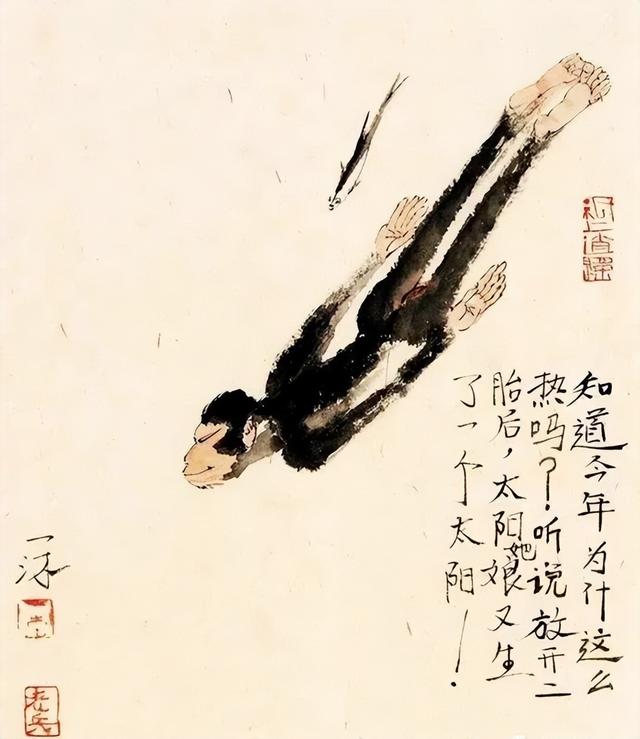 知道今年为什这么
热吗?!听说放开二
胎后,太阳她娘又生
了一个太阳!
一沐
老兵